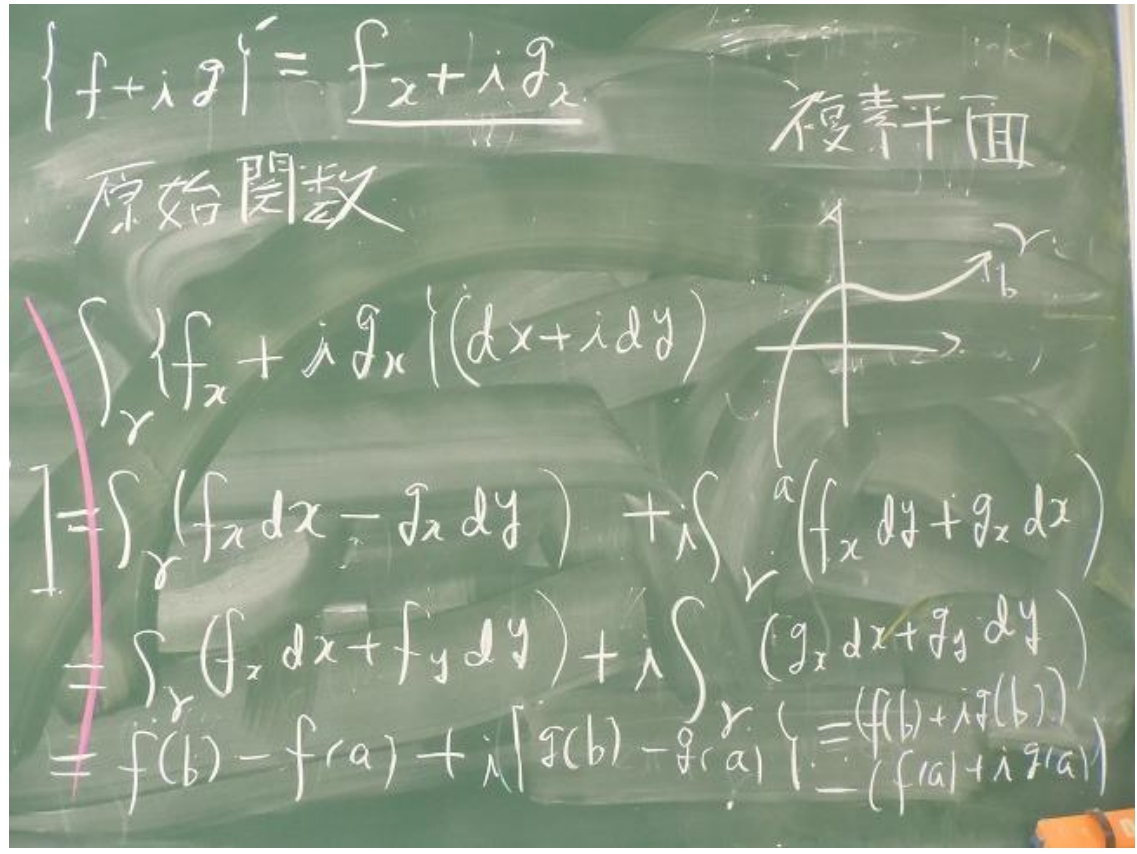 {f+ig}' = f_x+ig_x
複素平面
原始関数
γ
b
∫_γ {f_x + i g_x}(dx+idy)
a
= ∫_γ (f_x dx − g_x dy) + i∫_γ (f_x dy + g_x dx)
= ∫_γ (f_x dx + f_y dy) + i∫_γ (g_x dx + g_y dy)
= f(b) − f(a) + i{g(b) − g(a)} = (f(b)+ig(b))
− (f(a)+ig(a))